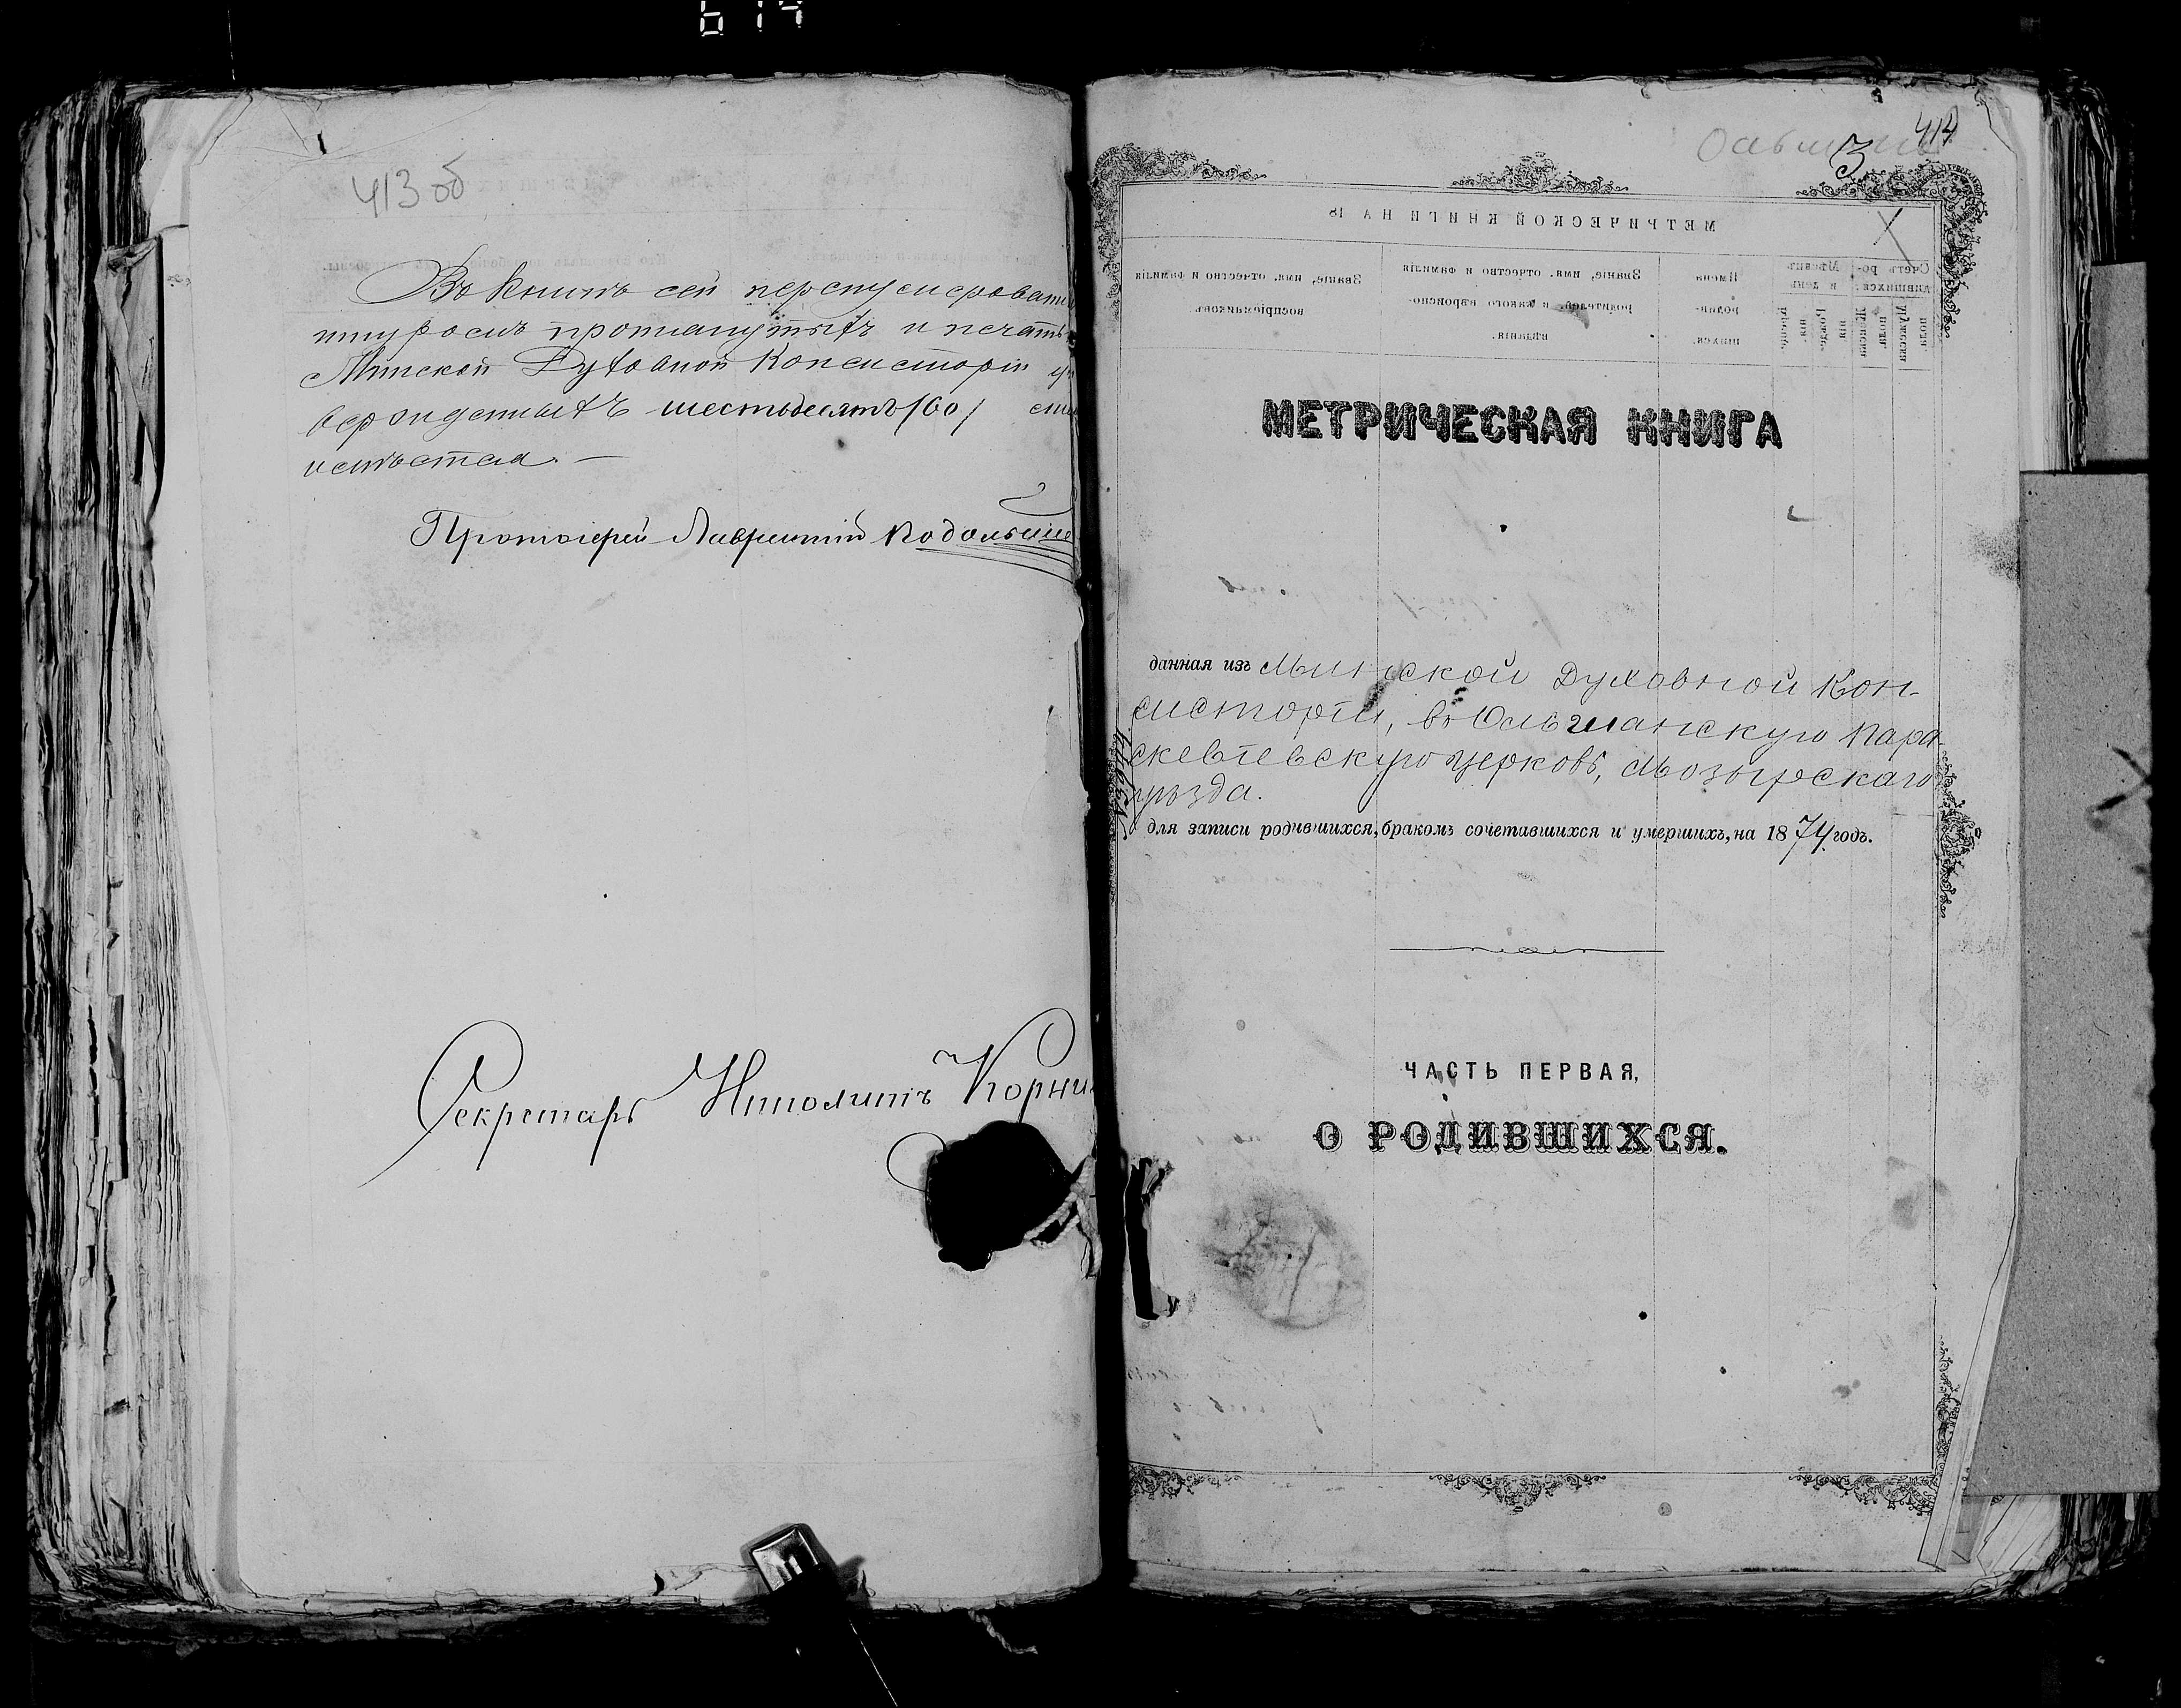 614
413 об
Въ книгѣ сей перенумерованн
шнуромъ протянутыхъ и печатью
Минской Духовной Консисторіи
шестьдесятъ /60/
Протоіерей Лаврентій Подольскі
Секретарь Ипполитъ Корни
414
3
МЕТРИЧЕСКОЙ КНИГИ НА 18
Счетъ родившихся.
Мѣсяцъ и день
Имена родившихся.
Званіе, имя, отчество и фамилія родителей, и какого вѣроисповѣданія.
Званіе, имя, отчество и фамилія воспріемниковъ
МЕТРИЧЕСКАЯ КНИГА
данная изъ Минской Духовной Кон-
систоріи, въ Ольманскую Пара-
скевіевскую церковь, Мозырскаго
уѣзда.
для записи родившихся, бракомъ сочетавшихся и умершихъ, на 1874 годъ.
ЧАСТЬ ПЕРВАЯ,
О РОДИВШИХСЯ.